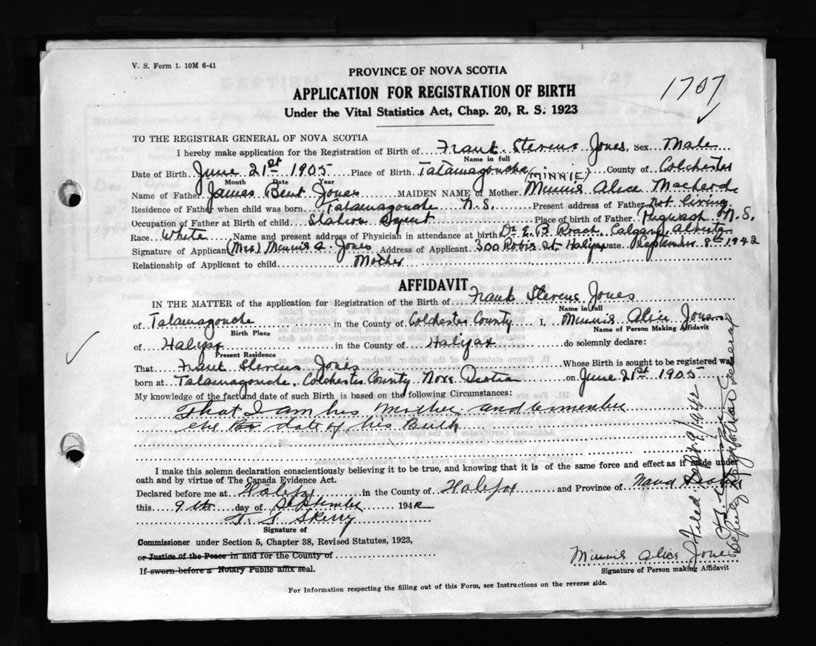 V. S. Form 1. 10M 6-41
PROVINCE OF NOVA SCOTIA
1707
APPLICATION FOR REGISTRATION OF BIRTH
Under the Vital Statistics Act, Chap. 20, R. S. 1923
TO THE REGISTRAR GENERAL OF NOVA SCOTIA
I hereby make application for the Registration of Birth of Frank Stevens Jones, Sex Male
Name in full
Date of Birth June 21st 1905 Place of Birth Tatamagouche County of Colchester
Month Date Year (MINNIE)
Name of Father James Bent Jones MAIDEN NAME of Mother Minnie Alice
Residence of Father when child was born Tatamagouche N.S. Present address of Father Not living
Occupation of Father at Birth of child Station Agent Place of birth of Father Pugwash N.S.
Race White Name and present address of Physician in attendance at birth Dr. Roach, Calgary, Alberta
Signature of Applicant (Mrs) Minnie A. Jones Address of Applicant 300 Robie St. Halifax Date September 8th 1942
Relationship of Applicant to child Mother
AFFIDAVIT
IN THE MATTER of the application for Registration of the Birth of Frank Stevens Jones
Name in full
of Tatamagouche in the County of Colchester County I, Minnie Alice Jones
Birth Place Name of Person Making Affidavit
of Halifax in the County of Halifax do solemnly declare:
Present Residence
That Frank Stevens Jones Whose Birth is sought to be registered was
born at Tatamagouche, Colchester County, Nova Scotia on June 21st 1905
My knowledge of the fact and date of such Birth is based on the following Circumstances:
That I am his Mother and remember
the date of his Birth
I make this solemn declaration conscientiously believing it to be true, and knowing that it is of the same force and effect as if made under
oath and by virtue of The Canada Evidence Act.
Declared before me at Halifax in the County of Halifax and Province of Nova Scotia
this 9th day of September 1942
Signature of
Commissioner under Section 5, Chapter 38, Revised Statutes, 1923,
or Justice of the Peace in and for the County of
If sworn before a Notary Public affix seal.
Minnie Alice Jones
Signature of Person making Affidavit
For Information respecting the filling out of this Form, see Instructions on the reverse side.
Filed
Deputy Registrar General